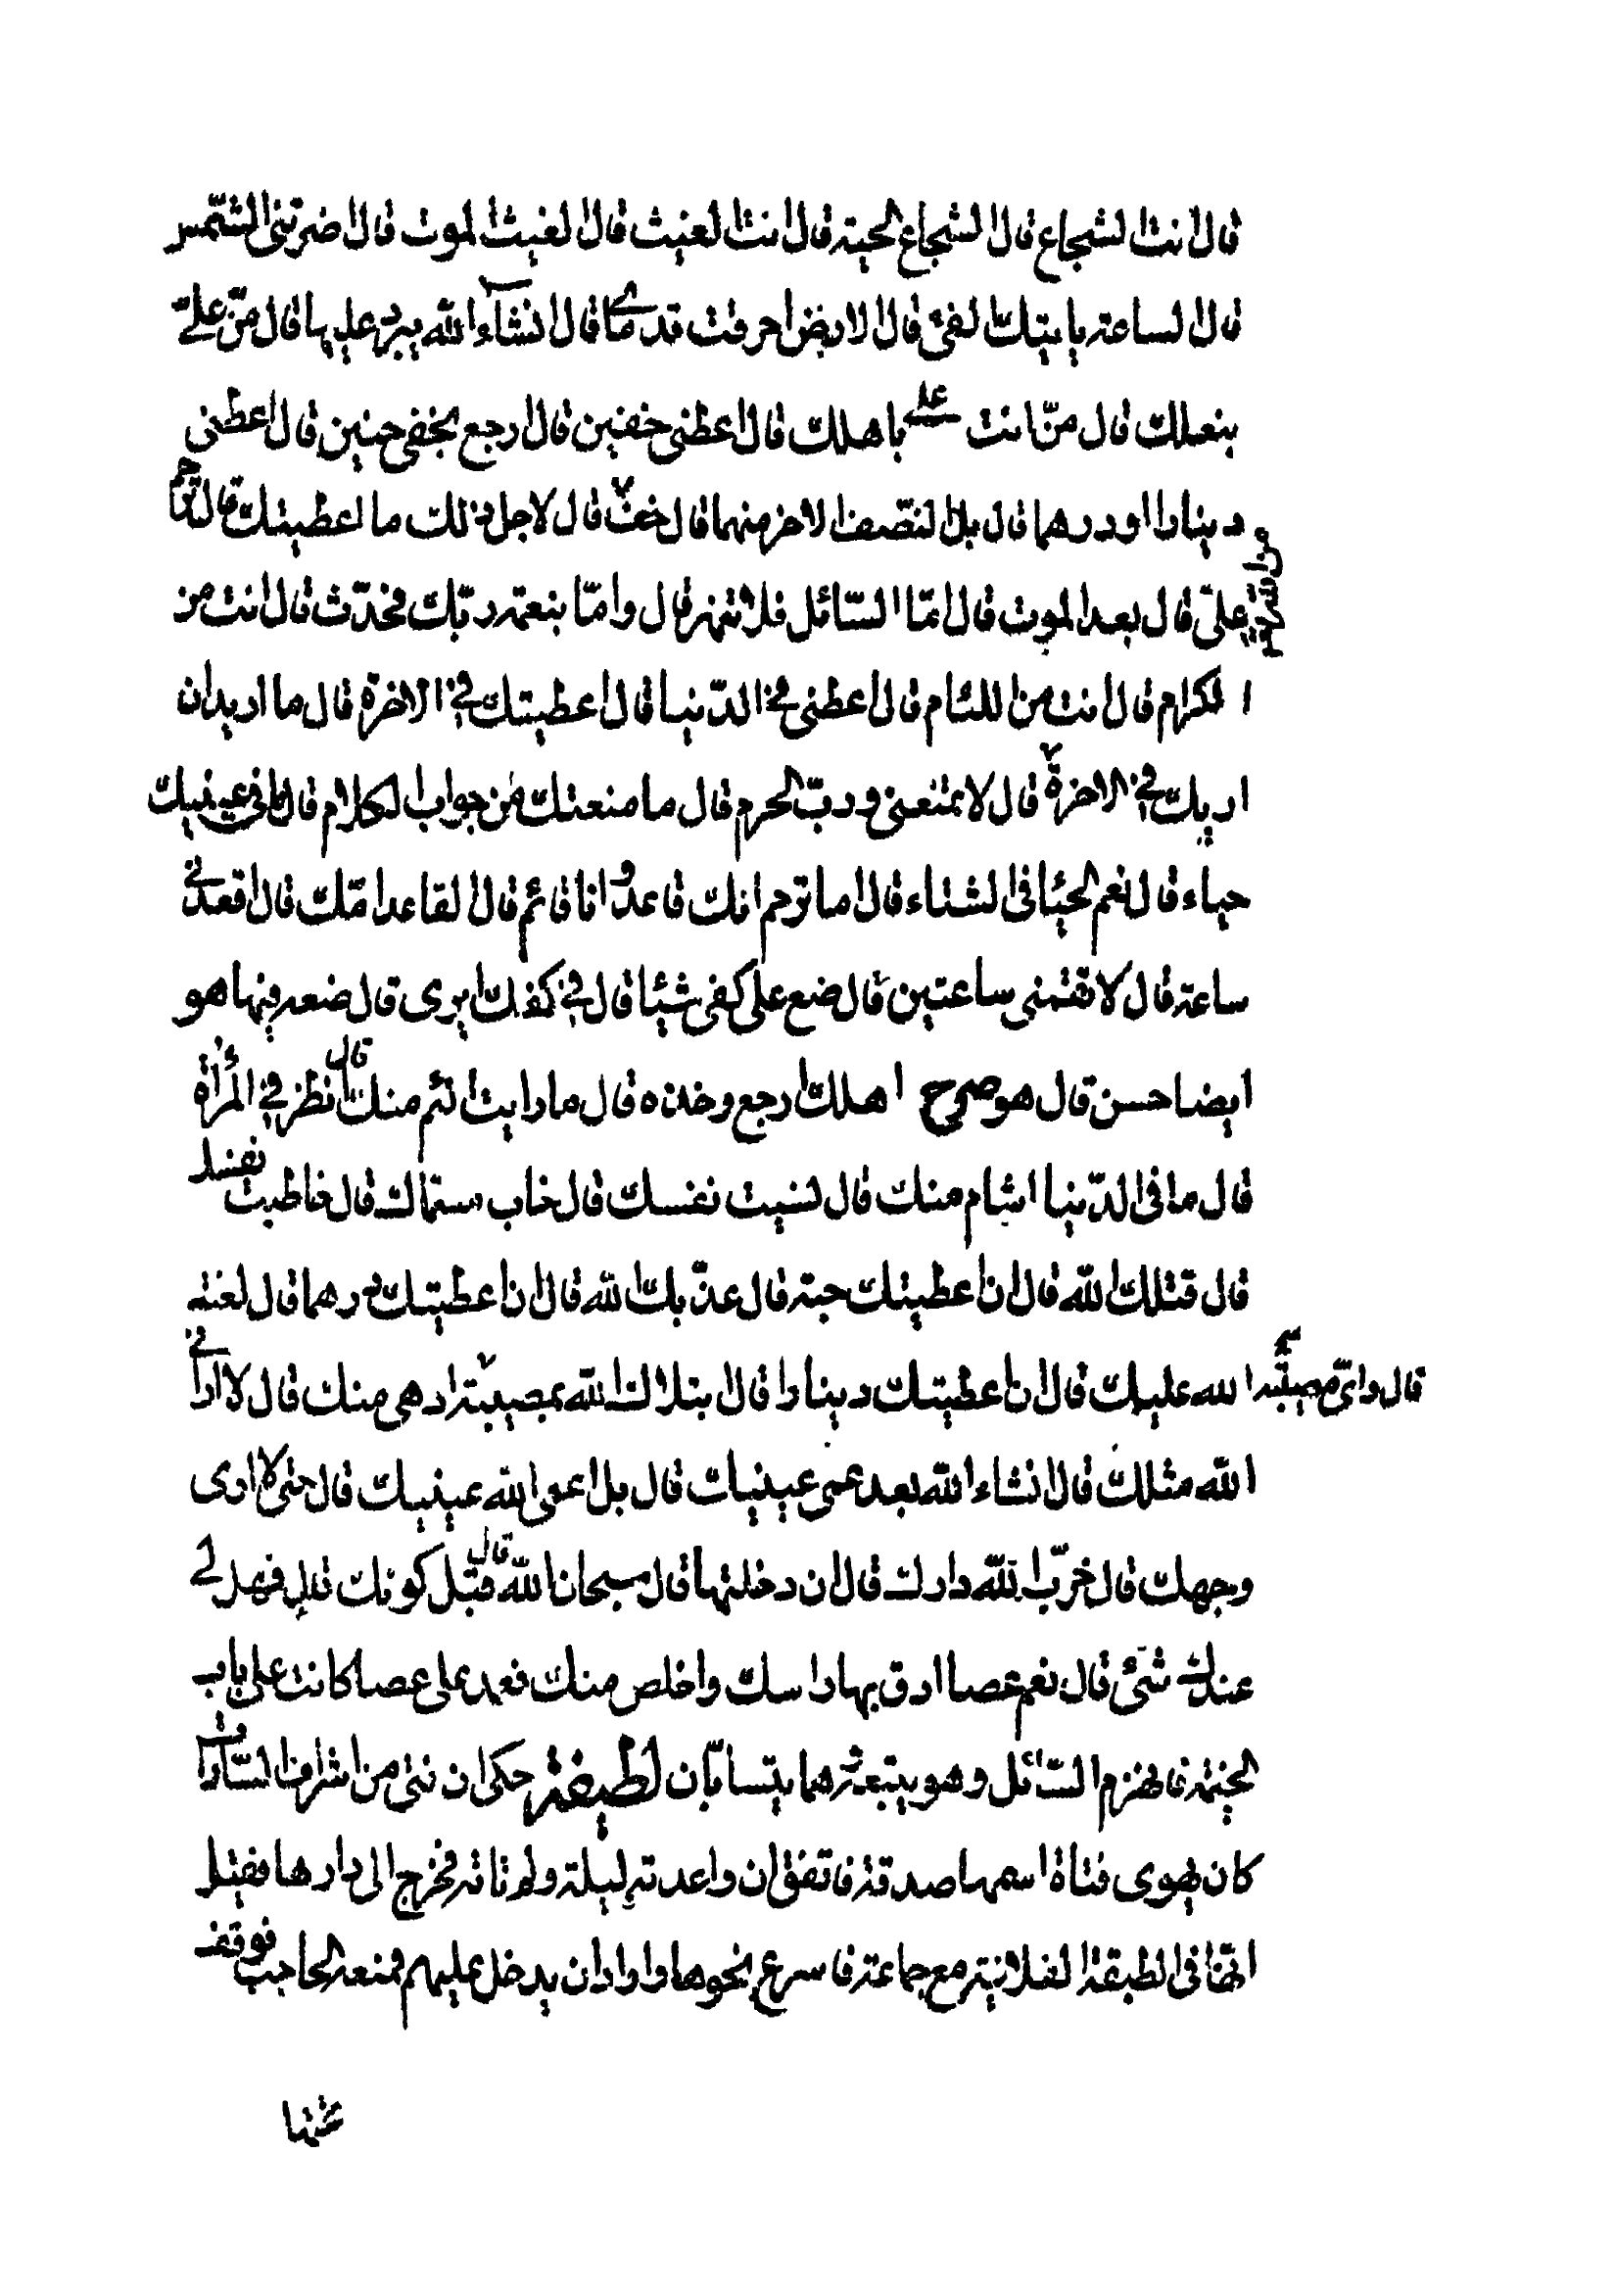 قال انت الشجاع قال الشجاع الحية قال انت الغيث قال الغيث الموت قال ضرتني الشمس
قال الساعة ياتيك الفئ قال الارض احرقت قدمي قال انشاء الله يبرد عليها قال منّ عليّ
بنعلك قال منّ انت علي باهلك قال اعطني خفين قال ارجع بخفي حنين قال اعطني
دينارا او درهما قال بل النصف الاخر منهما قال خف قال لاجل ذلك ما اعطيتك قال ترحم
عليّ قال بعد الموت قال امّا السّائل فلا تنهر قال وامّا بنعمة ربّك فحدّث قال انت من
الكرام قال انت من اللئام قال اعطني في الدّنيا قال اعطيتك في الاخرة قال ما اريد ان
اريك في الاخرة قال لا يمنعني وربّ الحرم قال ما منعتك من جواب الكلام قال ما في عينيك
حياء قال نعم الحيا في الشتاء قال اما ترحم انك قاعد وانا قائم قال القاعد امّك قال اقعدني
ساعة قال لا تقمني ساعتين قال ضع على كفي شيئا قال في كفك ايري قال ضعه فيها هو
ايضا حسن قال هو صرح اهلك ارجع وخذه قال ما رايت الئم منك قال انظر في المرأة
قال ما في الدّنيا اشام منك قال لنسيت نفسك قال خاب سمّاك قال خاطبت نفسك
قال قتلك الله قال ان اعطيتك حبة قال عذّبك الله قال ان اعطيتك درهما قال لعنة
الله عليك قال ان اعطيتك دينارا قال ابتلاك الله بمصيبة قال واىّ مصيبة ادهى منك قال لا اراني
الله مثلك قال انشاء الله بعد عمى عينيك قال بل اعمى الله عينيك قال حتى لا ارى
وجهك قال خرّب الله دارك قال ان دخلتها قال سبحان الله قال قبل كونك قال فهل لي
عندك شئ قال نعم عصا ادق بها راسك واخلص منك فعمد على عصا كانت على باب
الخيمة فانهزم السّائل وهو يتبعه وهما يتسابّان لطيفة حكى ان فتى من اشراف السّادات
كان يهوى فتاة اسمها صدقة فاتفق ان واعدته ليلة ولم تاته فخرج الى دارها فقيل
انّها في الطبقة الفلانية مع جماعة فاسرع نحوها واراد ان يدخل عليهم فمنعه الحاجب فوقف